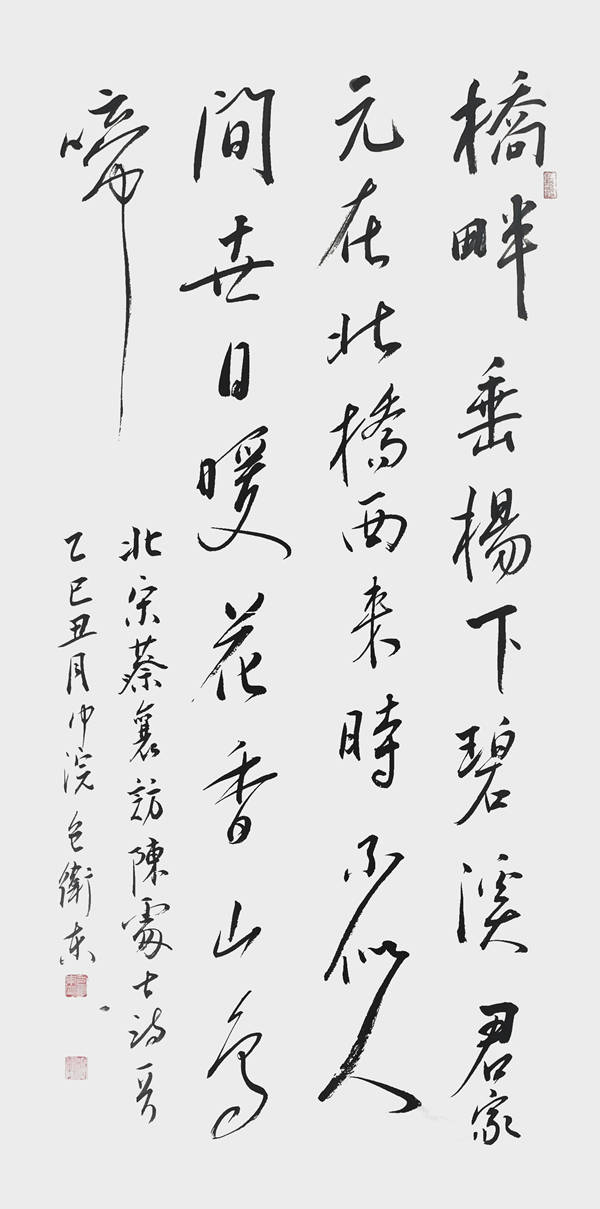 橋畔垂楊下碧溪君家
元在北橋西來時不似人
間世日暖花香山鳥
啼
北宋蔡襄訪陳處士詩一首
乙巳丑月中浣包衛東